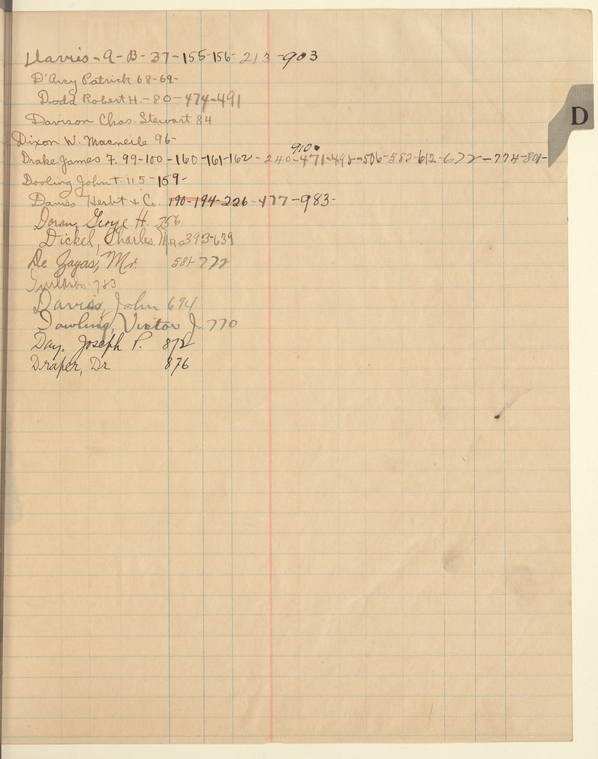 Davis - 9 - B - 37 - 155-156- 213 - 903
D'Arcy Patrick 68-69-
Dodd Robert H. - 80 - 474-491
D
Davison Chas. Stewart 84
Dixon W. Macneile 96-
910
Drake James F. 99-100-160-161-162-240-471-498-506-582-612-672-774-801-
Dooling John T. 115-159-
Dames Herbt & Co. 190-194-226-477-983-
Doran, George H. 256
Dickel, Charles Mrs 393-639
De Zayas, Mr. 581-772
783
Davis, John 694
Dowling, Victor J. 770
Day, Joseph P. 872
Draper, Dr 876